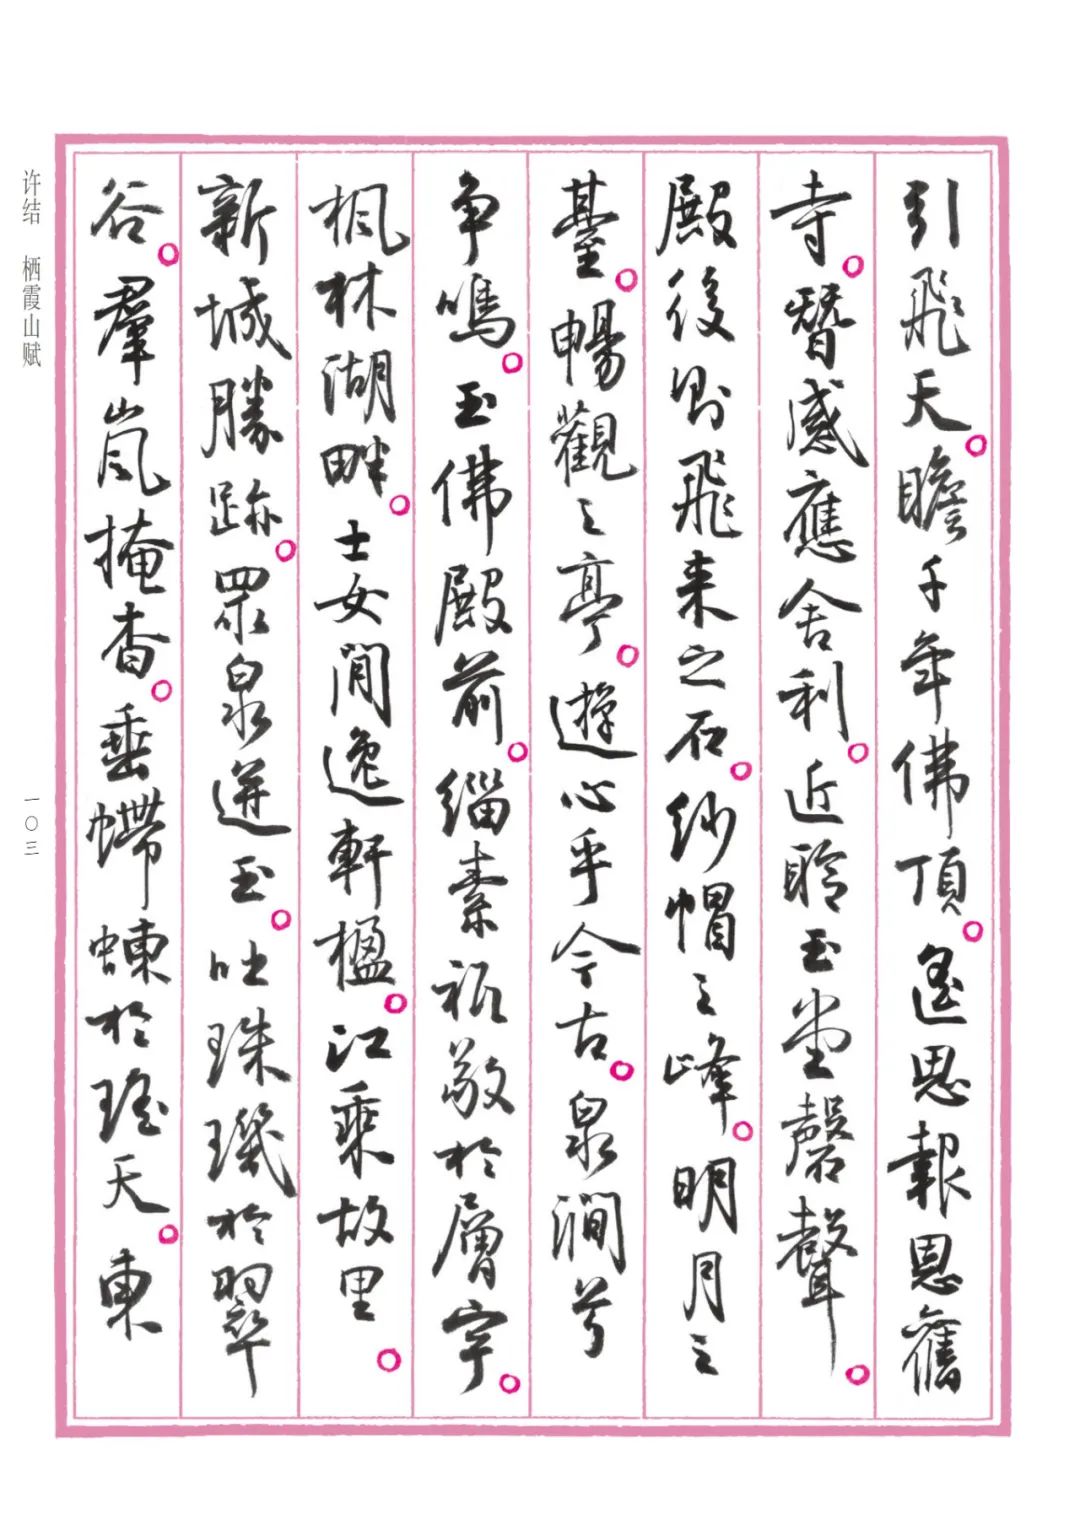 引飛天。瞻千年佛頂。遥思報恩舊
寺。簪感應舍利。近聆玉堂磬聲。
殿後則飛來之石。紗帽之峰。明月之
臺。暢觀之亭。遊心乎今古。泉澗兮
爭鳴。玉佛殿前。缁素祇敬於層宇。
楓林湖畔。士女閒逸軒楹。江乘故里。
新城勝跡。眾泉迸玉。吐珠璣於翠
谷。羣嵐掩杳。垂螮蝀於瑤天。東
许结 栖霞山赋
一〇三